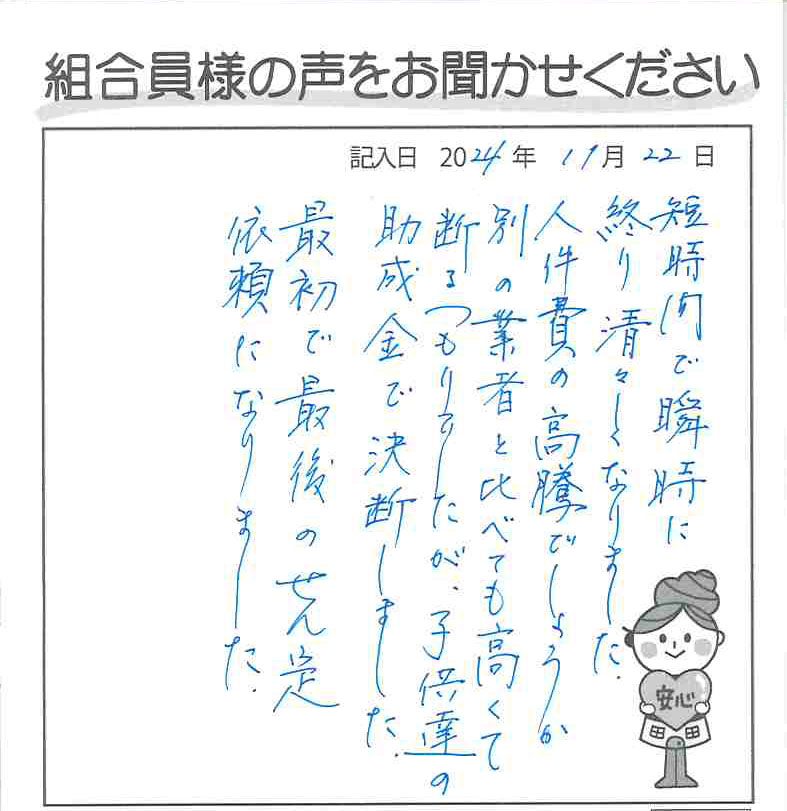 組合員様の声をお聞かせください
記入日 2024年 11月 22日
短時間で瞬時に
終り清々しくなりました.
人件費の高騰でしょうか
別の業者と比べても高くて
断るつもりでしたが、子供達の
助成金で決断しました.
最初で最後のせん定
依頼になりました.
安心